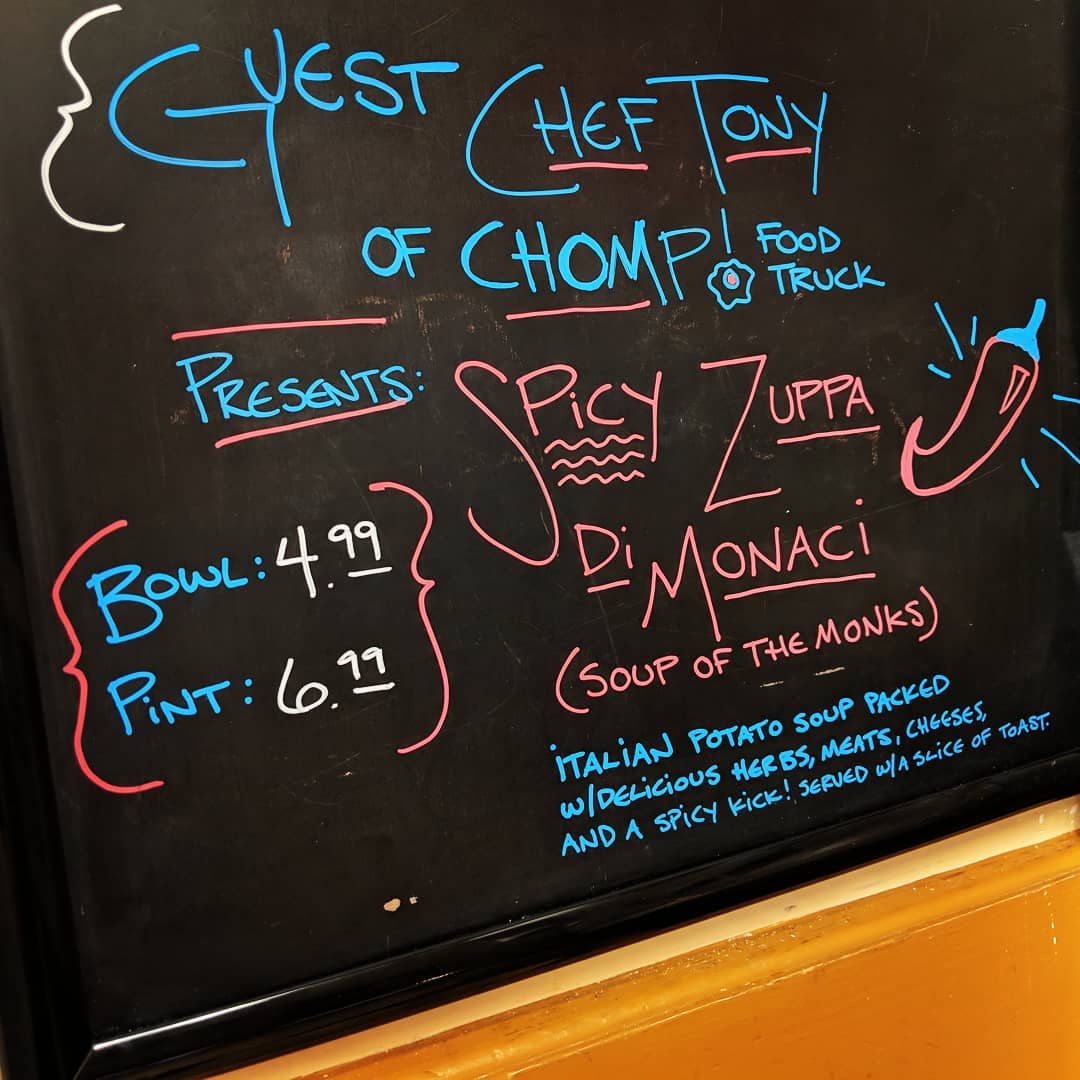 GUEST CHEF TONY
OF CHOMP! FOOD TRUCK
PRESENTS:
SPiCY ZUPPA
Di MONACi
(SOUP OF THE MONKS)
BOWL: 4.99
PiNT: 6.99
iTALiAN POTATO SOUP PACKED
W/DELiCiOUS HERBS, MEATS, CHEESES,
AND A SPiCY KiCK! SERVED W/A SLiCE OF TOAST.